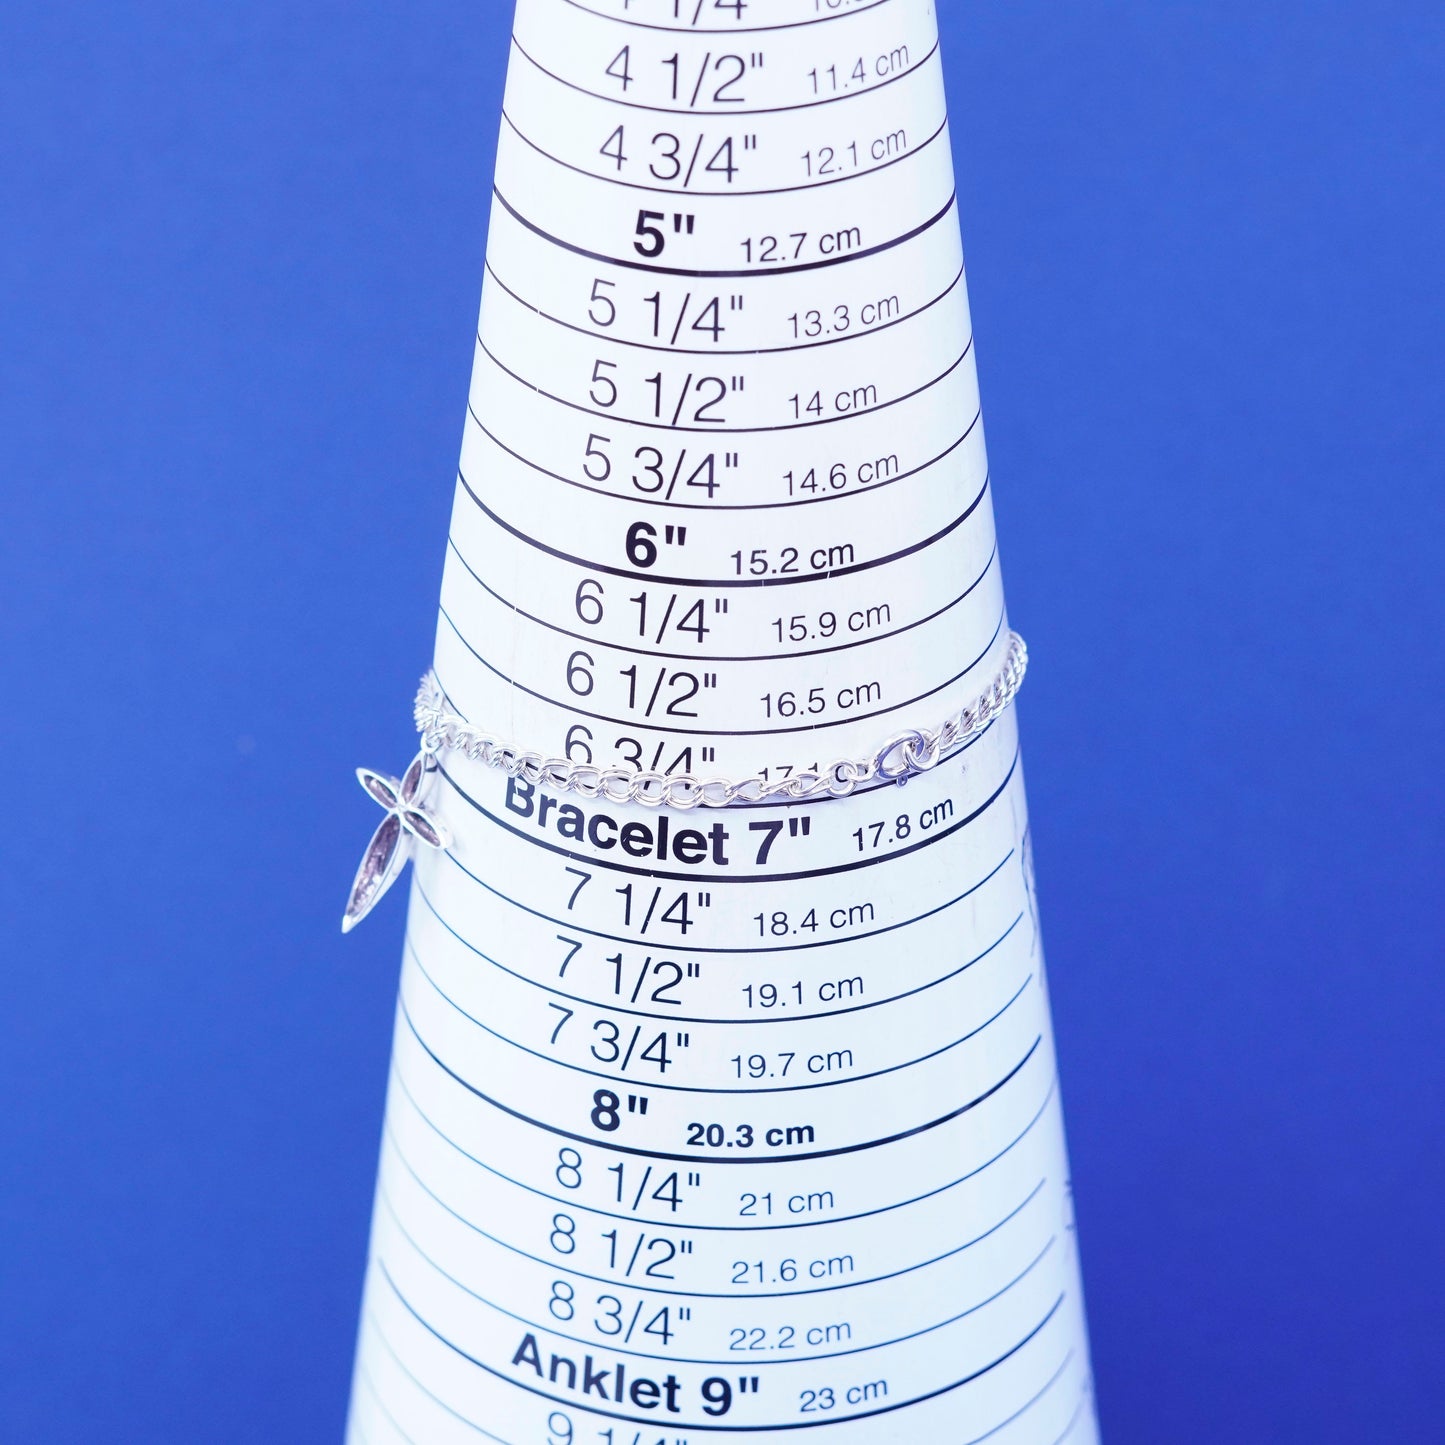 1/4"
4 1/2" 11.4 cm
4 3/4" 12.1 cm
5" 12.7 cm
5 1/4" 13.3 cm
5 1/2" 14 cm
5 3/4" 14.6 cm
6" 15.2 cm
6 1/4" 15.9 cm
6 1/2" 16.5 cm
6 3/4" 17.1 c
Bracelet 7" 17.8 cm
7 1/4" 18.4 cm
7 1/2" 19.1 cm
7 3/4" 19.7 cm
8" 20.3 cm
8 1/4" 21 cm
8 1/2" 21.6 cm
8 3/4" 22.2 cm
Anklet 9" 23 cm
9 1/4"